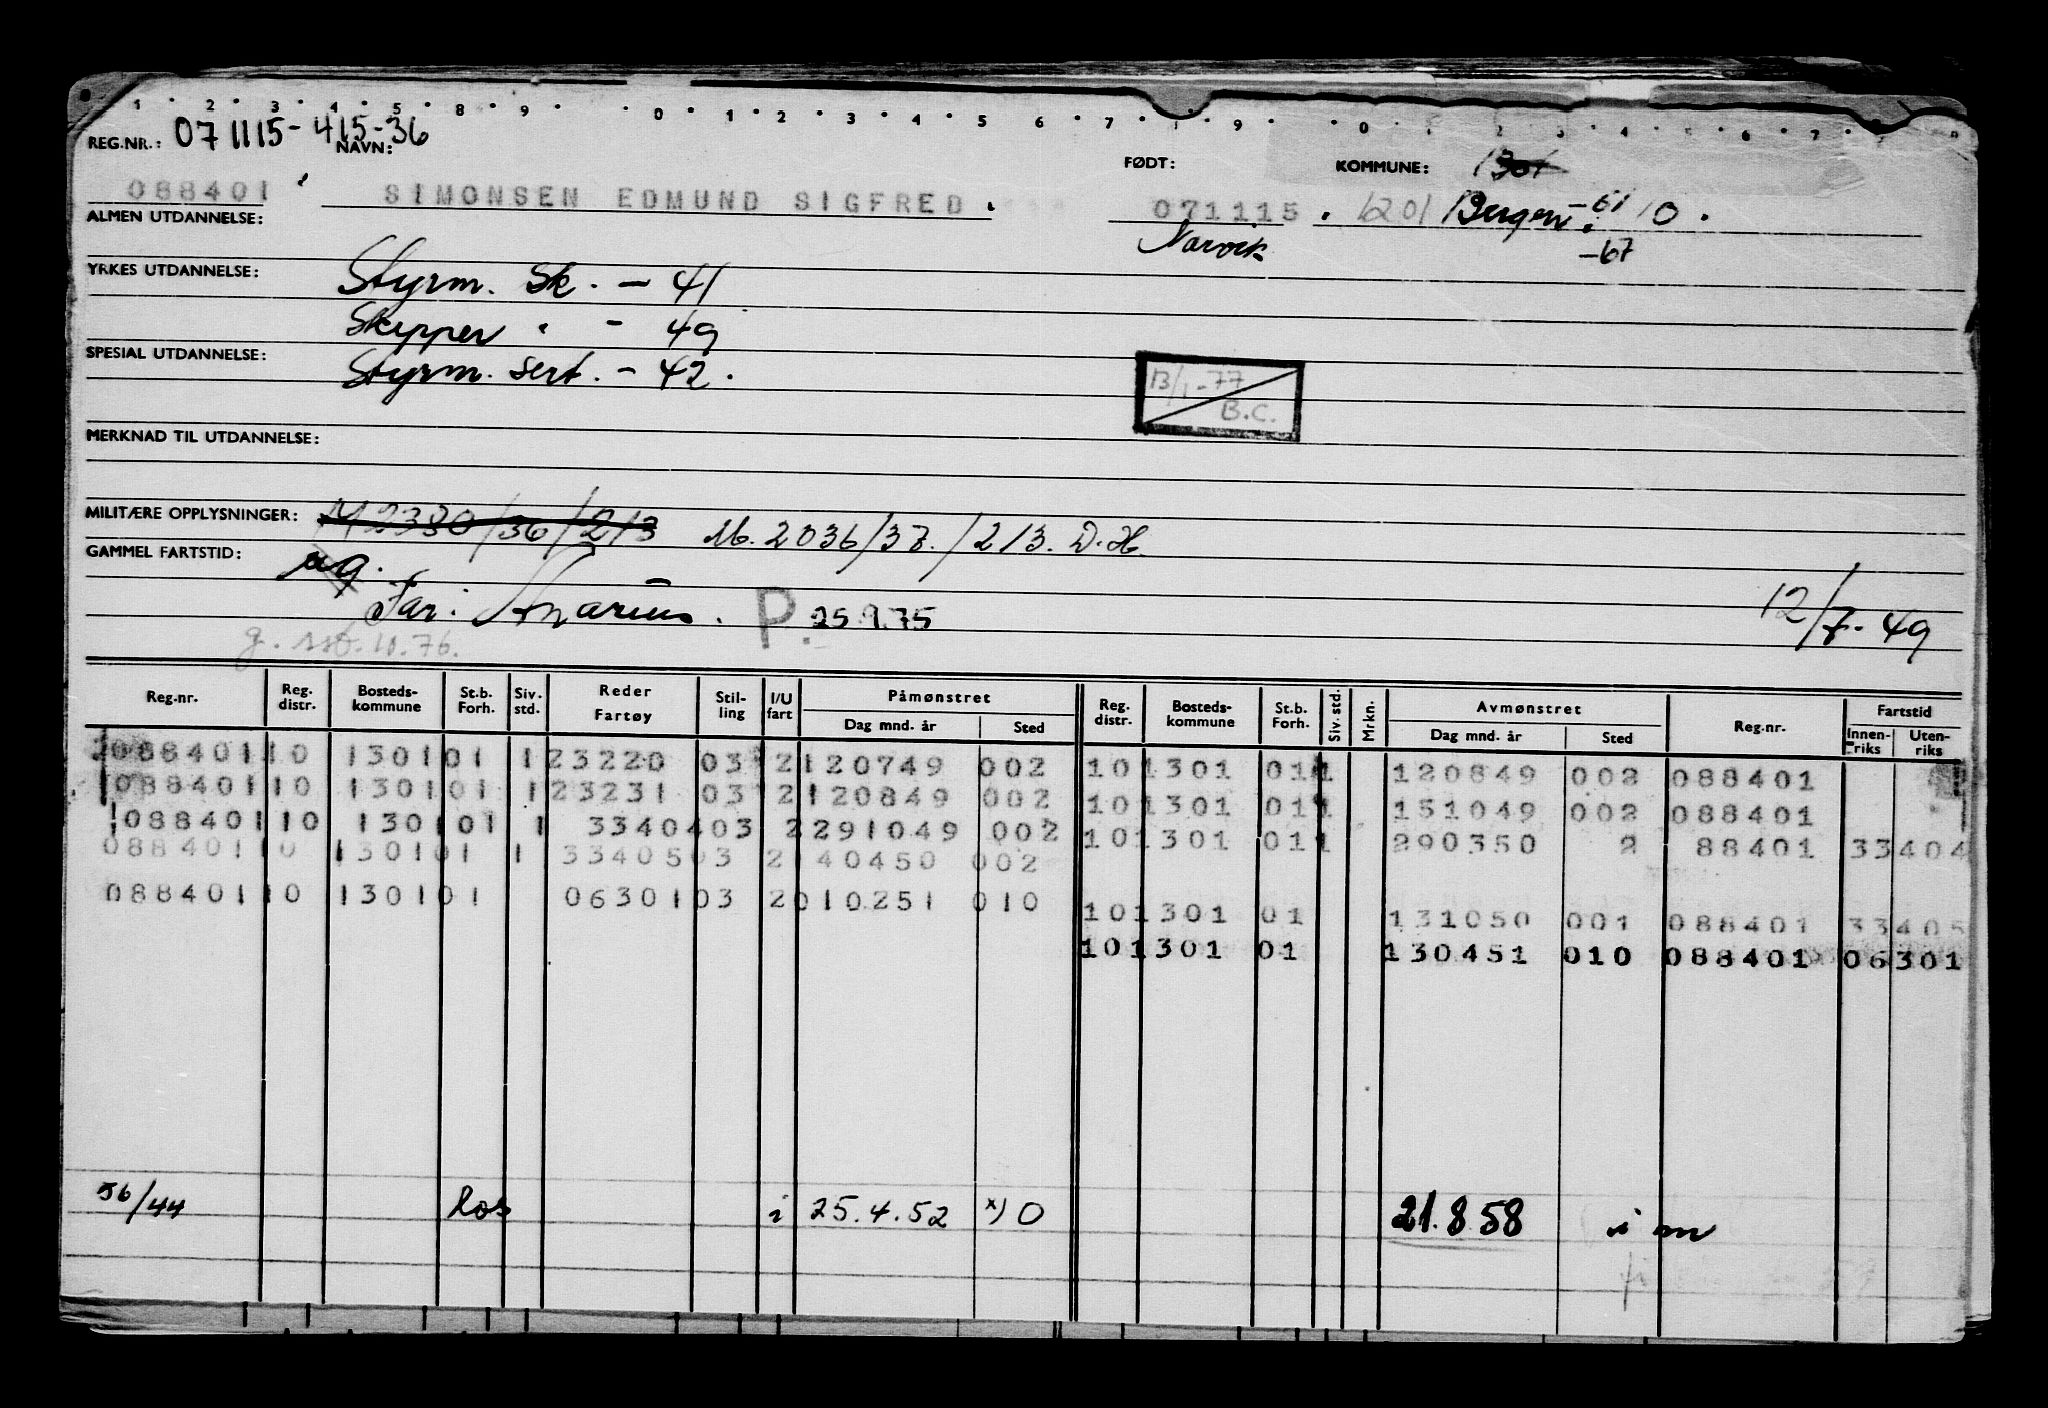 1 2 3 4 5 8 9 0 1 2 3 4 5 6 7 8 9 0 1 2 3 4 5 6 7 8 9
REG.NR.: 071115-415-36 NAVN: FØDT: KOMMUNE: 1301
088401 SIMONSEN EDMUND SIGFRED. 071115. 1201 Bergen -61 0.
ALMEN UTDANNELSE: Narvik -67
YRKES UTDANNELSE: Styrm. sk. - 41
Skipper " - 49
SPESIAL UTDANNELSE: Styrm. sert. - 42.
13/1-77
B.C.
MERKNAD TIL UTDANNELSE:
MILITÆRE OPPLYSNINGER: M 2380/36/213 M. 2036/37./213. D.H.
GAMMEL FARTSTID: ug.
Far: Marius. P. 25.9.75 12/7-49
g. 10.76.
Reg.nr. Reg. distr. Bosteds-kommune St.b. Forh. Siv. std. Reder Fartøy Stil-ling I/U fart Påmønstret Dag mnd. år Sted Reg. distr. Bosteds-kommune St.b. Forh. Siv. std. Mrkn. Avmønstret Dag mnd. år Sted Reg.nr. Fartstid Innen-riks Uten-riks
088401 10 1301 01 1 23220 03 2 120749 002 10 1301 01 1 120849 002 088401
088401 10 1301 01 1 23231 03 2 120849 002 10 1301 01 1 151049 002 088401
088401 10 1301 01 1 33404 03 2 291049 002 10 1301 01 1 290350 2 88401 33404
088401 10 1301 01 1 33405 03 2 40450 002
10 1301 01 131050 001 088401 33405
088401 10 1301 01 06301 03 2 010251 010
10 1301 01 130451 010 088401 06301
56/44 los i 25.4.52 x) 0 21.8.58 i m